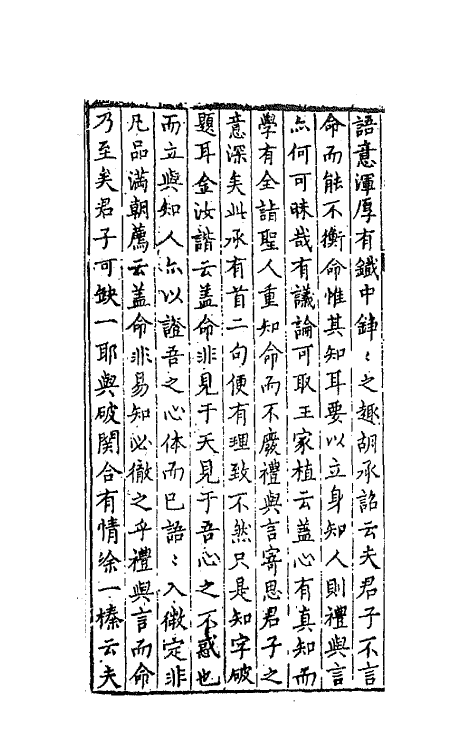 語意渾厚有鐵中錚〻之趣胡承詔云夫君子不言
命而能不衡命惟其知耳要以立身知人則禮與言
亦何可昧哉有議論可取王家植云蓋心有真知而
學有全詣聖人重知命而不廢禮與言寄思君子之
意深矣此承有首二句便有理致不然只是知字破
題耳金汝諧云盖命非見于天見于吾心之不惑也
而立與知人亦以證吾之心体而已語〻入微定非
凡品滿朝薦云盖命非易知必徹之乎禮與言而命
乃至矣君子可缺一耶與破関合有情徐一榛云夫